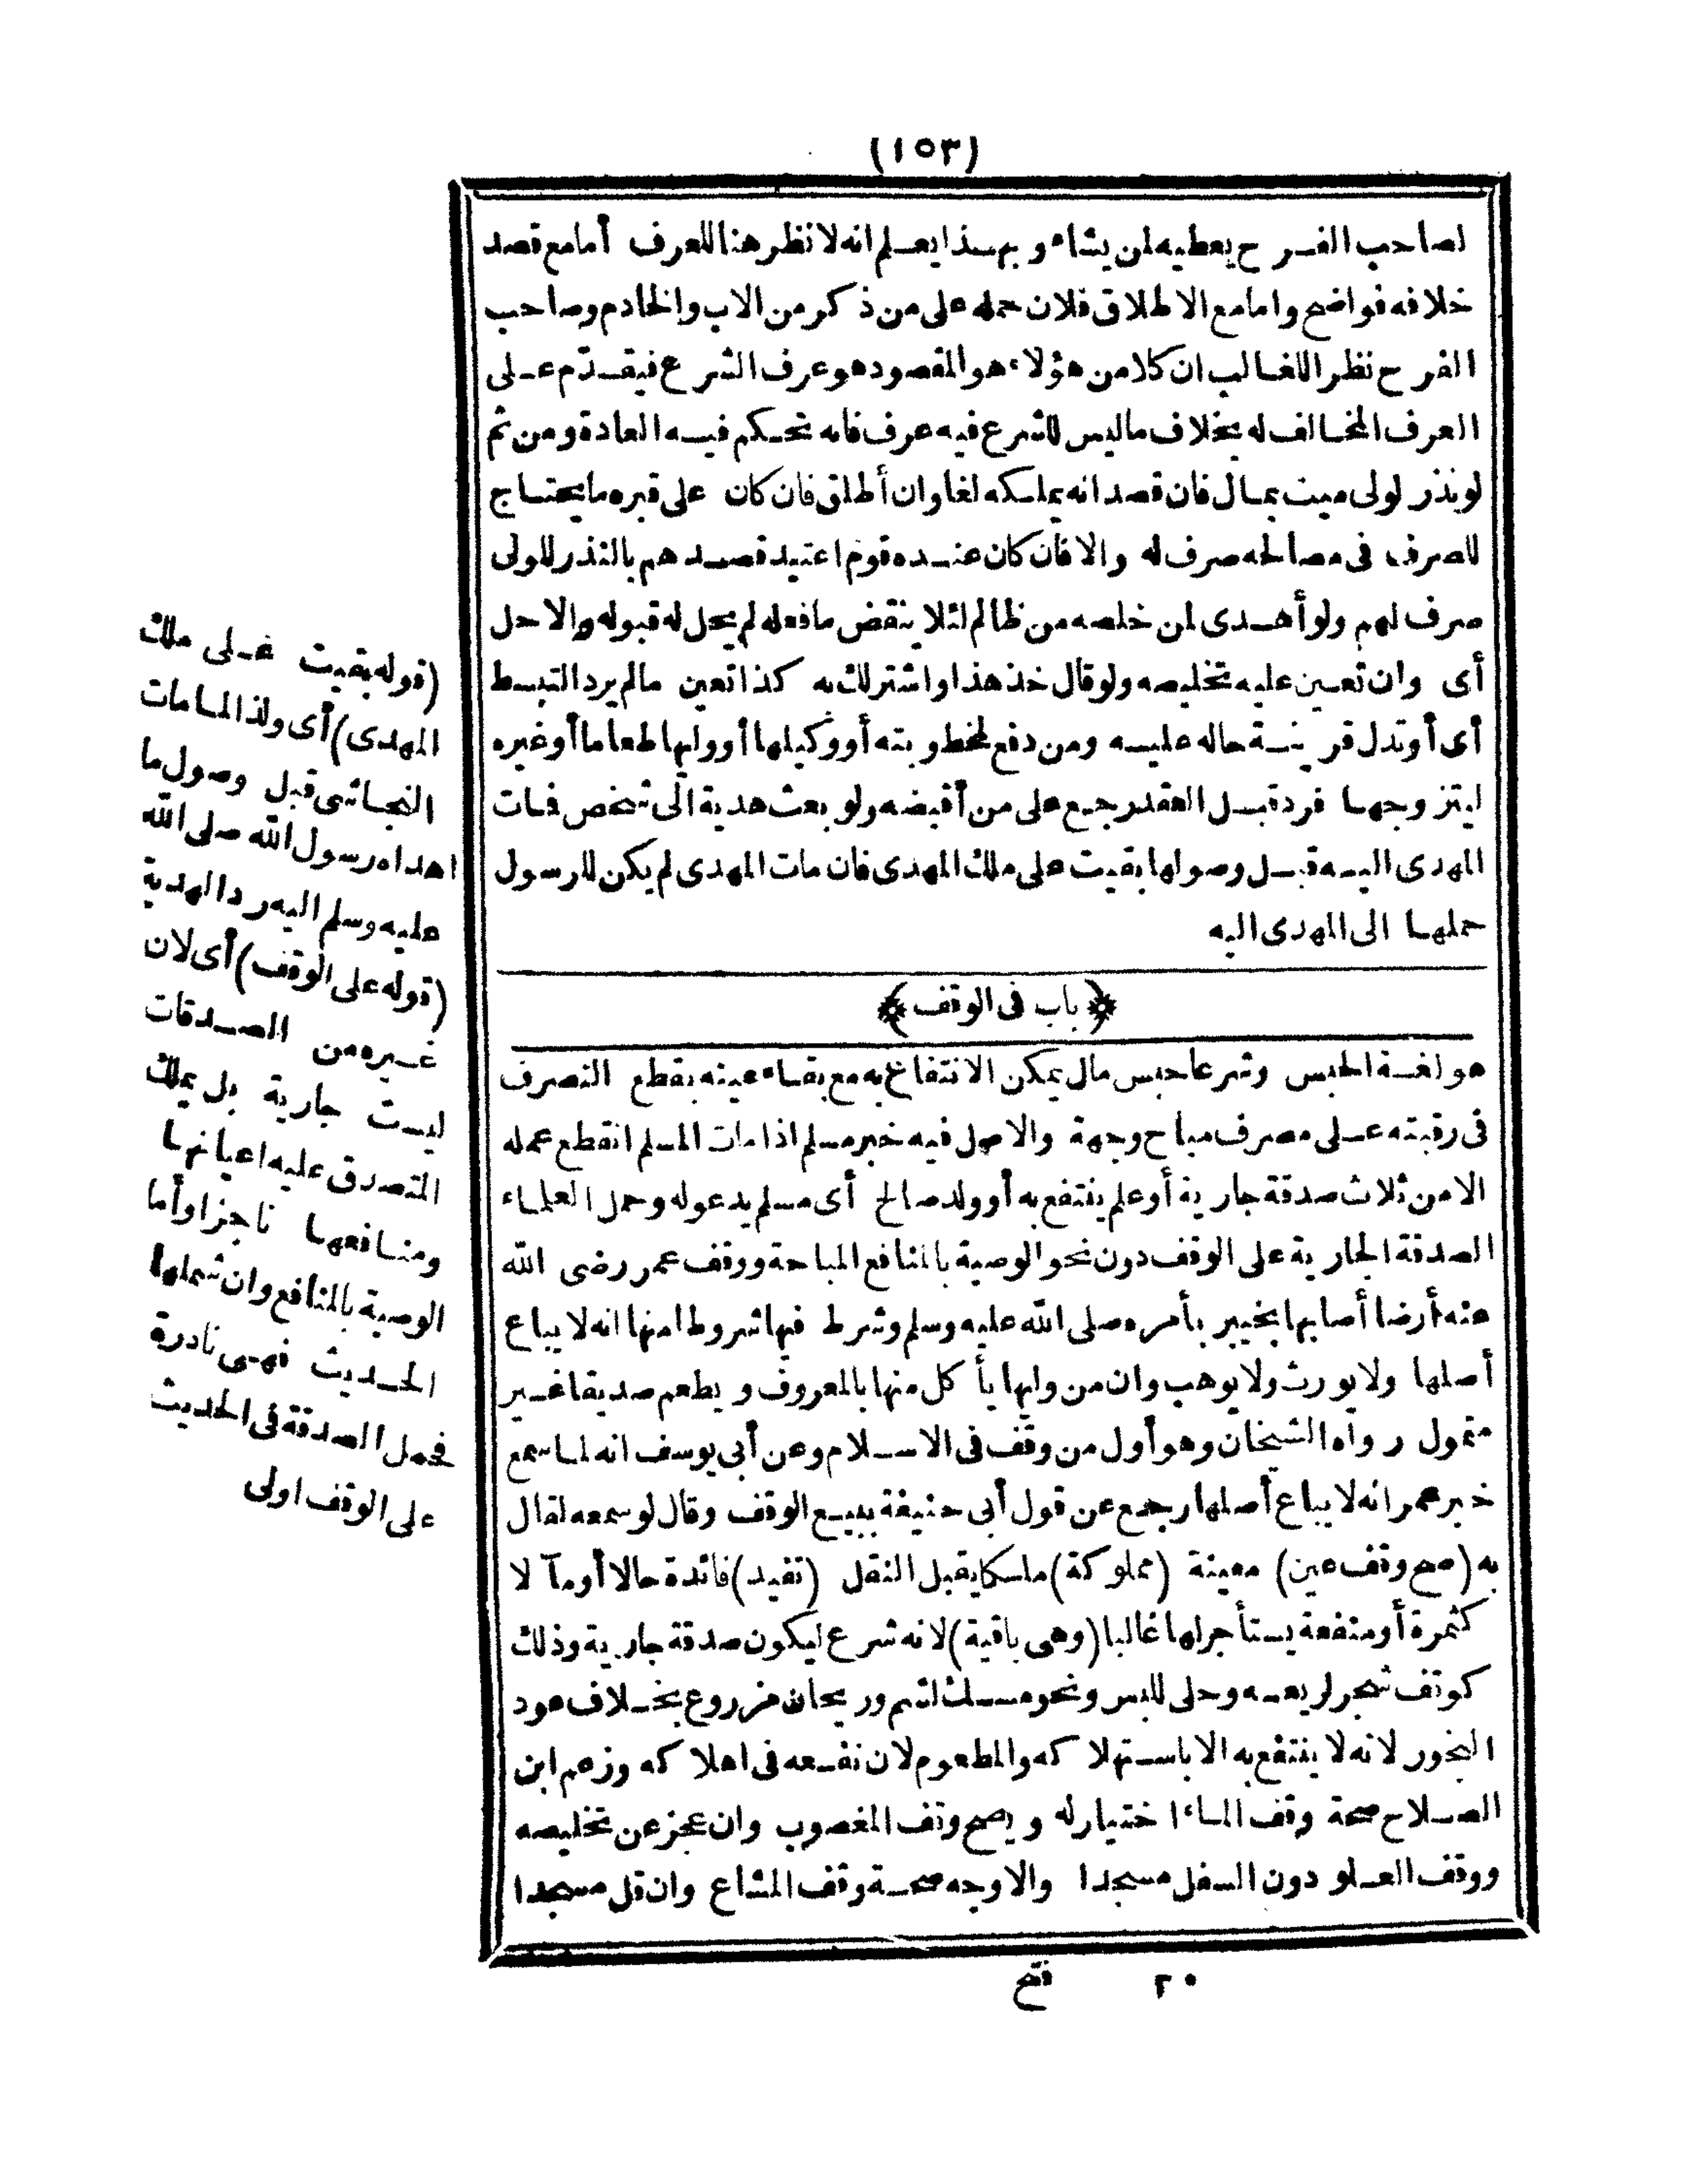 (١٥٣)
لصاحب الفرح يعطيه لمن يشاء وبهذا يعلم انه لا نظر هنا للعرف أما مع قصد
خلافه فواضح واما مع الاطلاق فلان حمله على من ذكر من الاب والخادم وصاحب
الفرح نظرا للغالب ان كلا من هؤلاء هو المقصود هو عرف الشرع فيقدّم على
العرف المخالف له بخلاف ما ليس للشرع فيه عرف فانه تحكم فيه العادة ومن ثم
لو نذر لولى ميت بمال فان قصد انه يملكه لغا وان أطلق فان كان على قبره ما يحتاج
للصرف فى مصالحه صرف له والا فان كان عنده قوم اعتيد قصدهم بالنذر للولى
صرف لهم ولو أهدى لمن خلصه من ظالم لئلا ينقض ما فعله لم يحل له قبوله والا حل
أى وان تعين عليه تخليصه ولو قال خذ هذا واشتر لك به كذا تعين مالم يرد التبسط
أى أو تدل قرينة حاله عليه ومن دفع لمخطوبته أو وكيلها أو وليها طعاما أو غيره
ليتزوجها فرد قبل العقد رجع على من أقبضه ولو بعث هدية الى شخص فمات
المهدى اليه قبل وصولها بقيت على ملك المهدى فان مات المهدى لم يكن للرسول
حملها الى المهدى اليه
﴿باب فى الوقف﴾
هو لغة الحبس وشرعا حبس مال يمكن الانتفاع به مع بقاء عينه بقطع التصرف
فى رقبته على مصرف مباح وجهة والاصل فيه خبر مسلم اذا مات المسلم انقطع عمله
الا من ثلاث صدقة جارية أو علم ينتفع به أو ولد صالح أى مسلم يدعو له وحمل العلماء
الصدقة الجارية على الوقف دون نحو الوصية بالمنافع المباحة ووقف عمر رضى الله
عنه أرضا أصابها بخيبر بأمره صلى الله عليه وسلم وشرط فيها شروطا منها انه لا يباع
أصلها ولا يورث ولا يوهب وان من وليها يأكل منها بالمعروف ويطعم صديقا غير
متمول رواه الشيخان وهو أول من وقف فى الاسلام وعن أبى يوسف انه لما سمع
خبر عمر انه لا يباع أصلها رجع عن قول أبى حنيفة ببيع الوقف وقال لو سمعه لقال
به (صح وقف عين) معينة (مملوكة) ملكا يقبل النقل (تفيد) فائدة حالا أو مآ لا
كثمرة أو منفعة يستأجر لها غالبا (وهى باقية) لانه شرع ليكون صدقة جارية وذلك
كوقف شجر لريعه وحلى للبس ونحو مسك لشم وريحان مزروع بخلاف عود
البخور لانه لا ينتفع به الا باستهلاكه والمطعوم لان نفعه فى اهلاكه وزعم ابن
الصلاح صحة وقف الماء اختيار له ويصح وقف المغصوب وان عجز عن تخليصه
ووقف العلو دون السفل مسجدا والاوجه صحة وقف المشاع وان قل مسجدا
٢٠ فتح
(قوله بقيت على ملك
المهدى) أى ولذا لما مات
النجاشى قبل وصول ما
اهداه رسول الله صلى الله
عليه وسلم اليه رد الهدية
(قوله على الوقف) أى لان
غيره من الصدقات
ليست جارية بل يملك
المتصدق عليه اعيانها
ومنافعها ناجزا وأما
الوصية بالمنافع وان شملها
الحديث فهى نادرة
فحمل الصدقة فى الحديث
على الوقف اولى